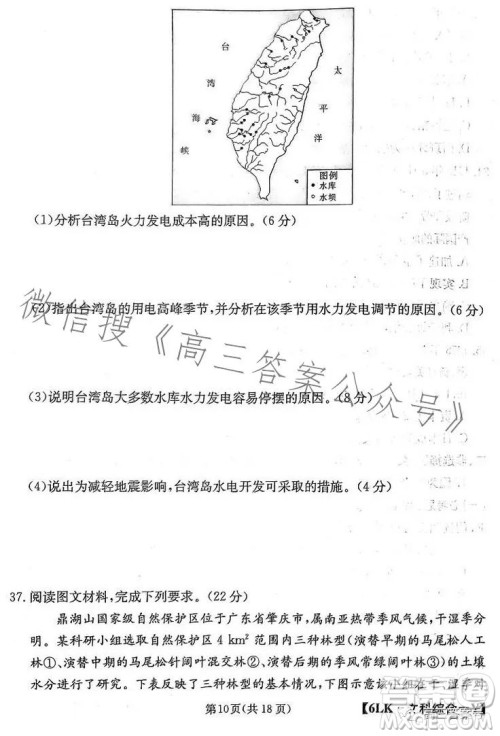 台
湾
海
峡
太
平
洋
图例
水库
水坝
(1)分析台湾岛火力发电成本高的原因。(6分)
(2)指出台湾岛的用电高峰季节,并分析在该季节用水力发电调节的原因。(6分)
(3)说明台湾岛大多数水库水力发电容易停摆的原因。(8分)
(4)说出为减轻地震影响,台湾岛水电开发可采取的措施。(4分)
微信搜《高三答案公众号》
37.阅读图文材料,完成下列要求。(22分)
鼎湖山国家级自然保护区位于广东省肇庆市,属南亚热带季风气候,干湿季分
明。某科研小组选取保护区4 km²范围内三种林型(演替早期的马尾松人工
林①、演替中期的马尾松针阔叶混交林②和演替后期的季风常绿阔叶林③)的土壤
水分进行了研究。下表为三种林型的
第10页(共18页)
【6LK·文科综合